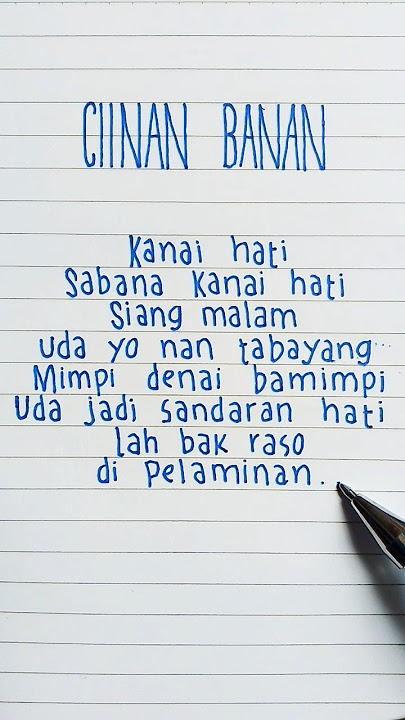 CIINAN BANAN
Kanai hati
Sabana Kanai hati
Siang malam
uda yo nan tabayang...
Mimpi denai bamimpi
Uda jadi sandaran hati
lah bak raso
di pelaminan.